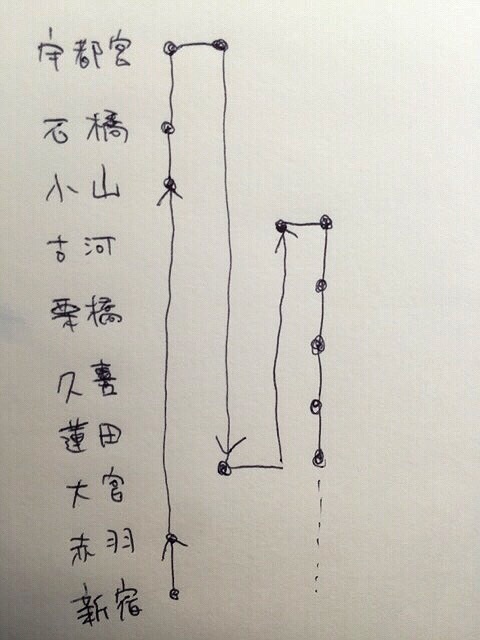 宇都宮
石橋
小山
古河
栗橋
久喜
蓮田
大宮
赤羽
新宿